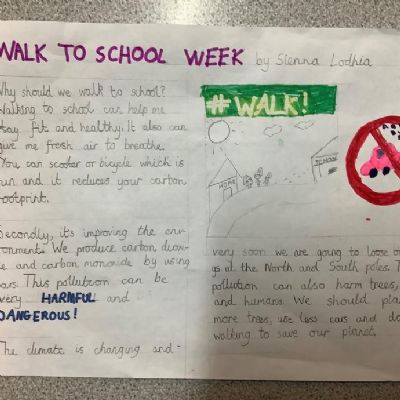 WALK TO SCHOOL WEEK by Sienna Lodhia
Why should we walk to school?
Walking to school can help me
stay fit and healthy. It also can
give me fresh air to breathe.
You can scooter or bicycle which is
fun and it reduces your carbon
footprint.
Secondly, its improving the env-
ironment. We produce carbon diox-
ide and carbon monoxide by using
cars. This pollution can be
very HARMFUL and
DANGEROUS!
The climate is changing and-
#WALK!
HOME
SCHOOL
very soon we are going to loose
at the North and South poles.
pollution can also harm trees,
and humans. We should
more trees, use less cars and
walking to save our planet.